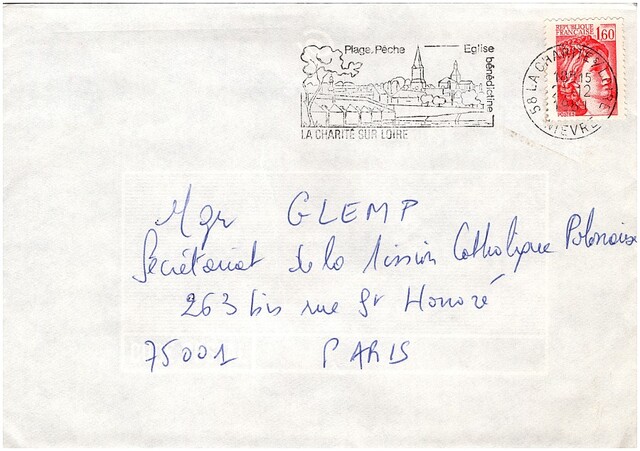 Plage. Pêche
Eglise
bénédictine
LA CHARITÉ SUR LOIRE
REPUBLIQUE
FRANÇAISE
1,60
58 LA CHARITE S/ LOIRE
12
NIEVRE
Mgr GLEMP
Secrétariat de la Mission Catholique Polonaise
263 bis rue St Honoré
75001 PARIS